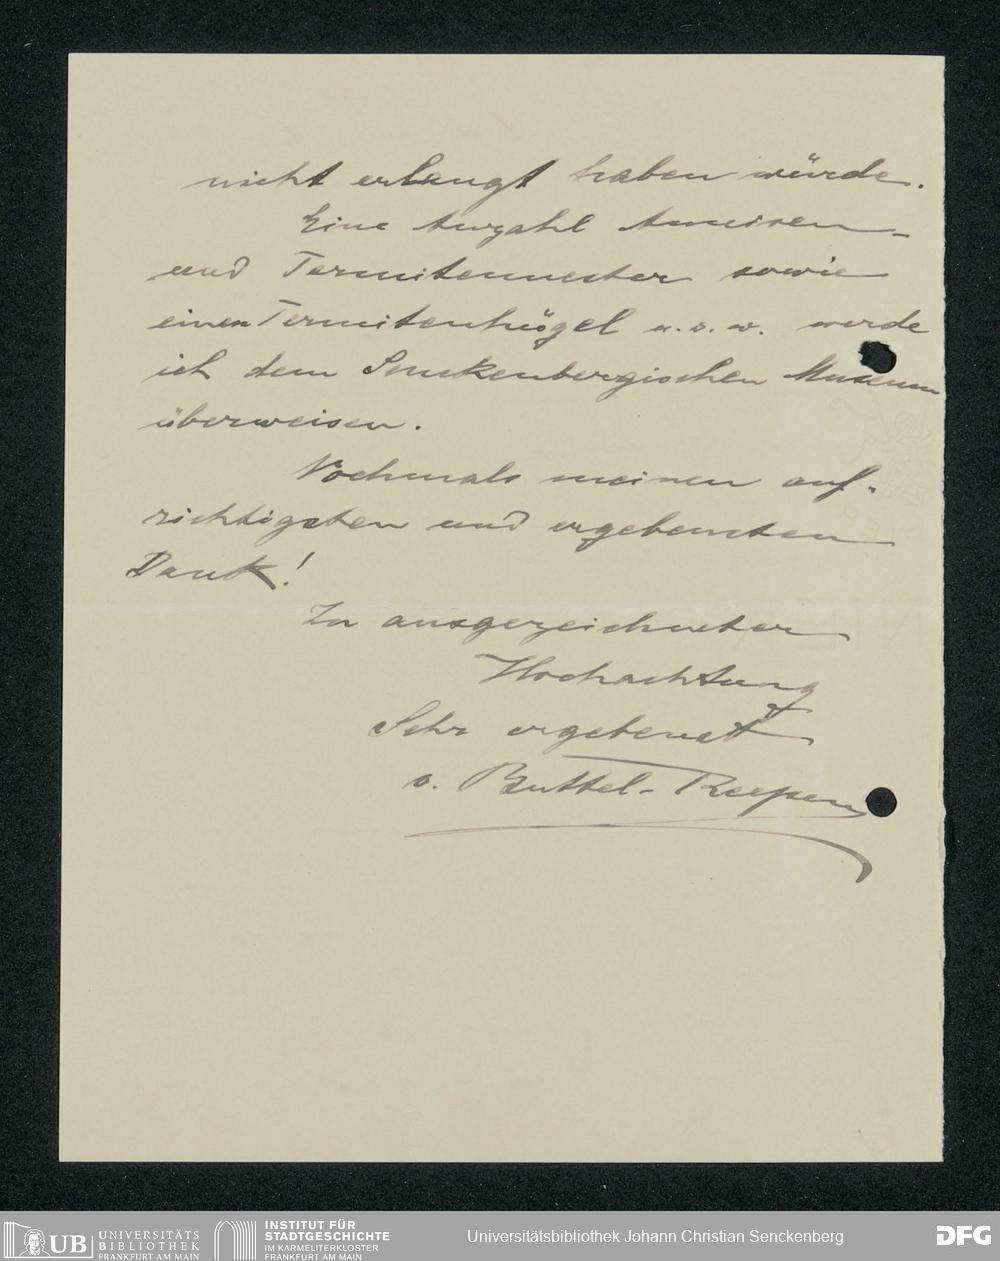 nicht erlangt haben würde.
Eine Anzahl Ameisen-
und Termitennester sowie
einen Termitenhügel u. s. w. werde
ich dem Senckenbergischen Museum
überweisen.
Nochmals meinen auf-
richtigsten und ergebensten
Dank!
In ausgezeichneter
Hochachtung
Sehr ergebenst
v. Buttel-Reepen
UB UNIVERSITÄTS
BIBLIOTHEK
FRANKFURT AM MAIN
INSTITUT FÜR
STADTGESCHICHTE
IM KARMELITERKLOSTER
FRANKFURT AM MAIN
Universitätsbibliothek Johann Christian Senckenberg
DFG